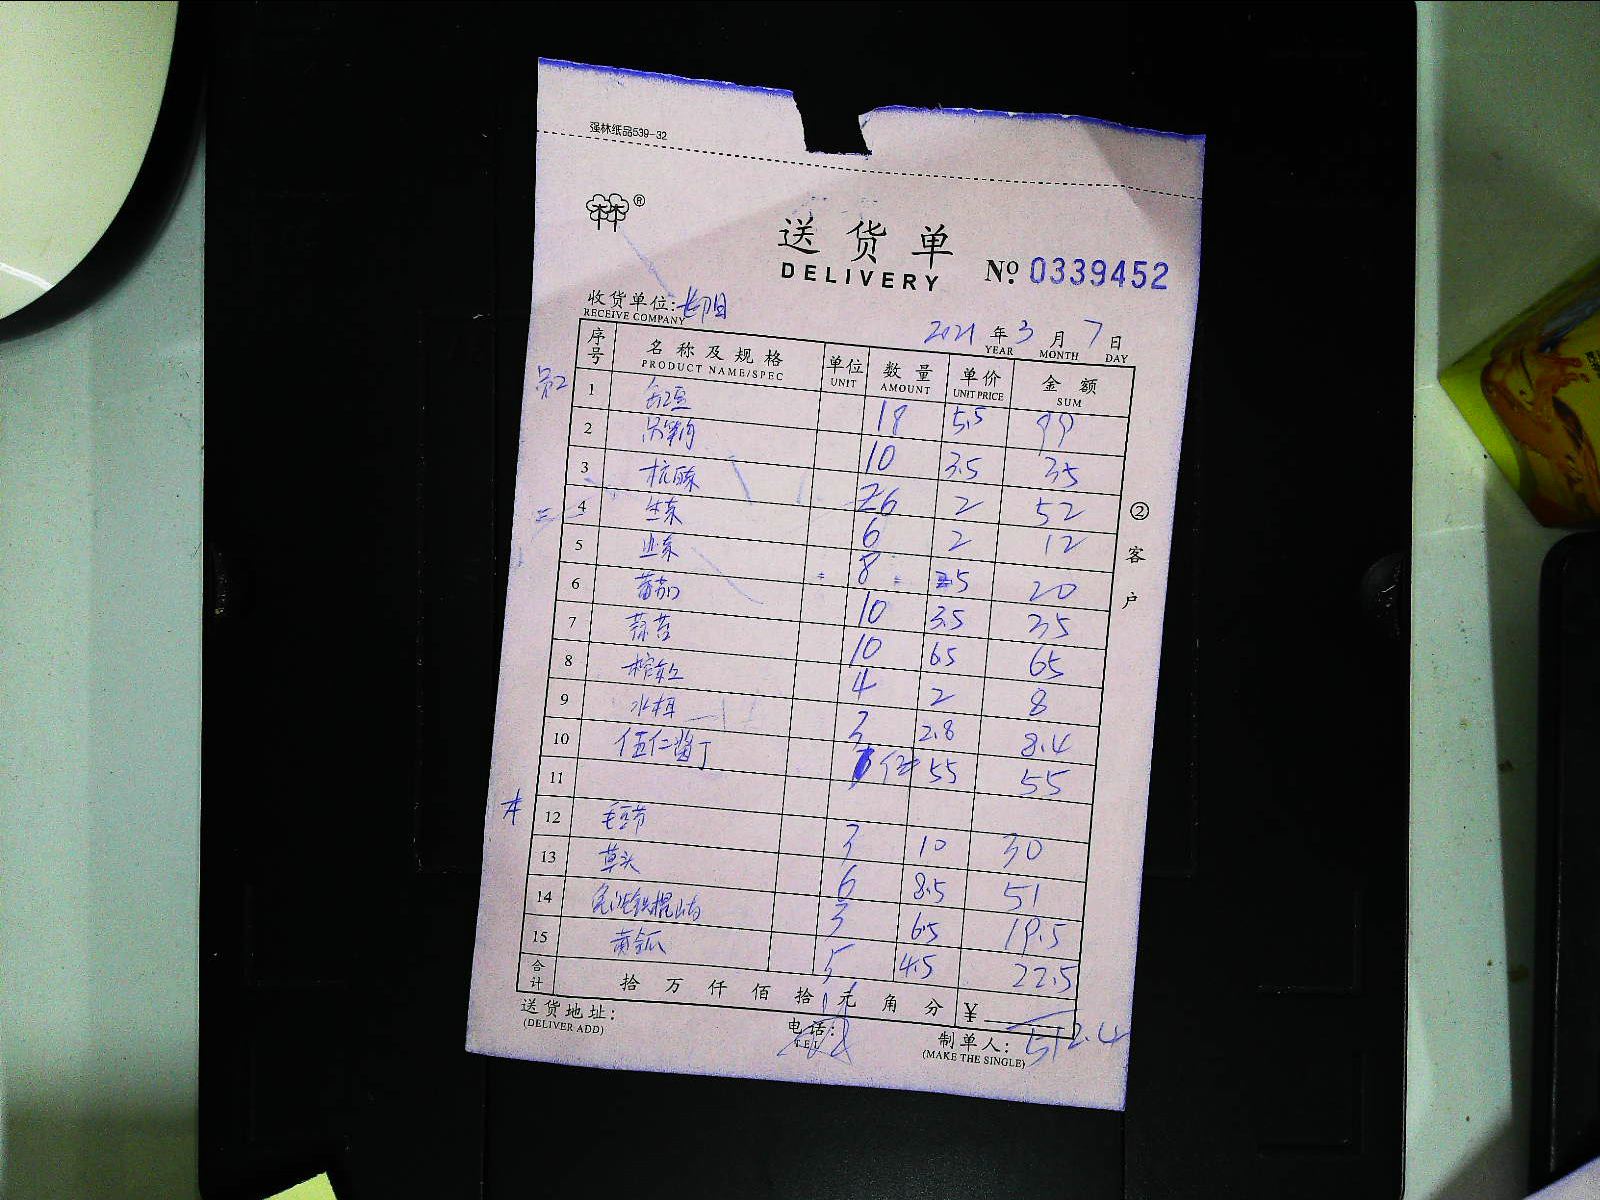 强林纸品539-32
林®
送货单
DELIVERY № 0339452
收货单位:
RECEIVE COMPANY
2021 年 3 月 7 日
YEAR MONTH DAY
序号 名称及规格 单位 数量 单价 金额
PRODUCT NAME/SPEC UNIT AMOUNT UNIT PRICE SUM
1 18 5.5 99
2 10 3.5 35
3 26 2 52
三 4 生菜 6 2 12
5 8 2.5 20
6 番茄 10 3.5 35
7 蒜苔 10 6.5 65
8 4 2 8
9 3 2.8 8.4
10 伍仁酱丁 55 55
11
12 毛豆节 3 10 30
13 草头 6 8.5 51
14 3 6.5 19.5
15 黄瓜 5 4.5 22.5
合计 拾 万 仟 佰 拾 元 角 分 ¥
512.4
送货地址:
(DELIVER ADD)
电话:
TEL
制单人:
(MAKE THE SINGLE)
②客户